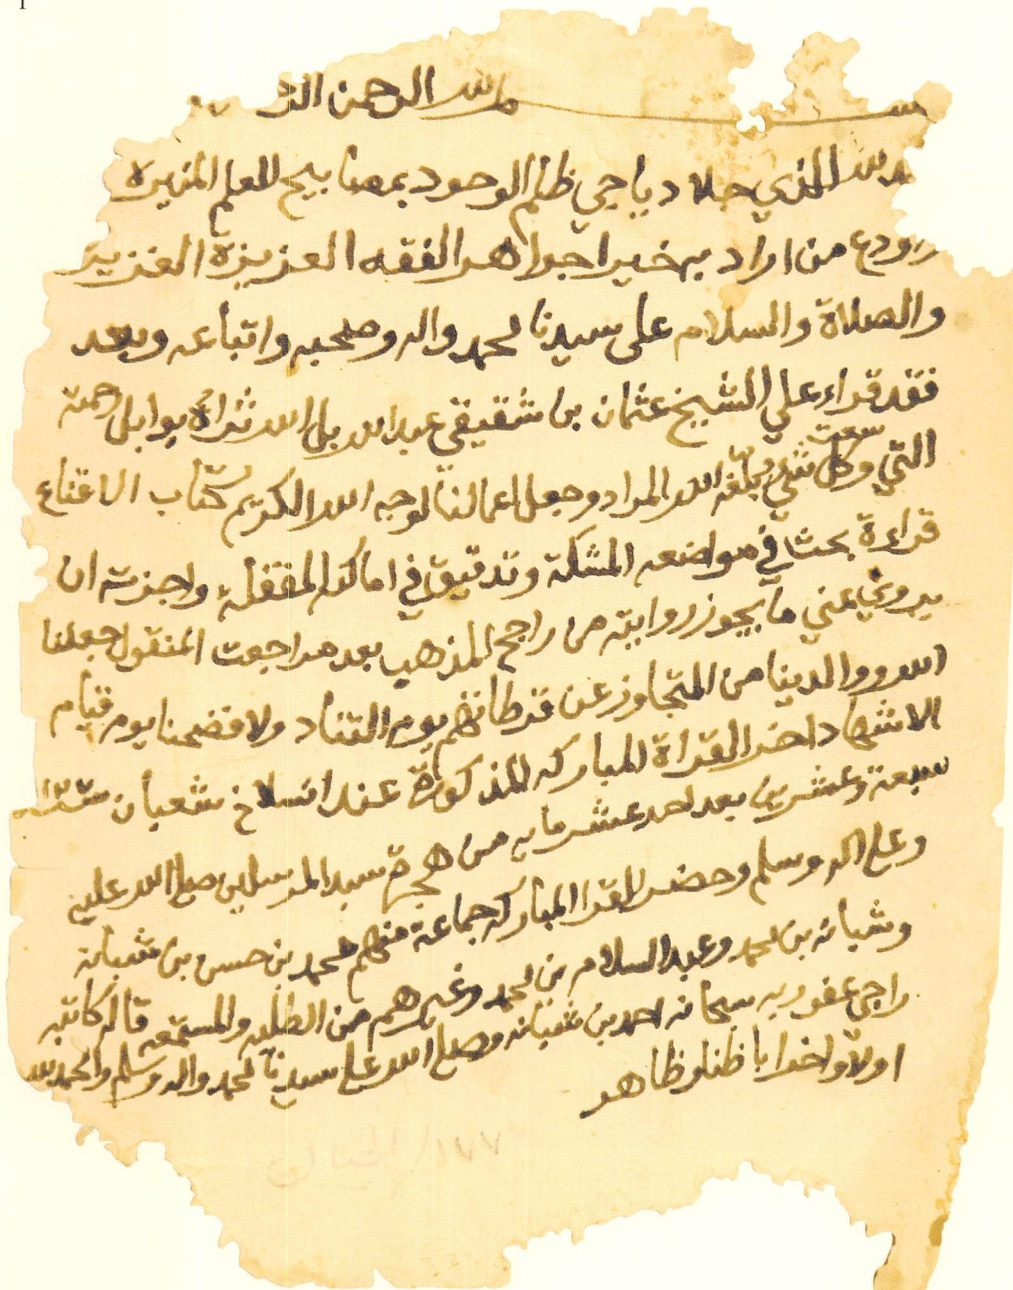 1
الله الرحمن
لله الذي جلا دياجي ظلم الوجود بمصابيح العلم المنيره
رودع من اراد به خيرا جواهر الفقه العزيزة الغزير
والصلاة والسلام على سيدنا محمد واله وصحبه واتباعه وبعد
فقد قراء علي الشيخ عثمان بن شقيقي عبدالله بل الله ثراه بوابل رحمة
التي وسعت كل شي بلغه الله المراد وجعل اعمالنا لوجه الله الكريم كتاب الاقناع
قراءة بحث في مواضعه المشكلة وتدقيق في اماكنه المقفلة واجزته ان
يروي عني ما يجوز روايته من راجح المذهب بعد مراجعت المنقول جعلنا
الله ووالدينا من المتجاوز عن فرطاتهم يوم التناد ولا فضحنا يوم قيام
الاشهاد اخر القراة المباركه المذكورة عند انسلاخ شعبان سنة
سبعة وعشرين بعد احد عشر مايه من هجرة سيد المرسلين صلى الله عليه
وعلى اله وسلم وحضر القرا المباركه جماعة منهم محمد بن حسن بن شبانه
وشبانه بن محمد وعبد السلام بن محمد وغيرهم من الطلبه والمستمعه قاله كاتبه
راجي عفو ربه سبحانه احمد بن شبانه وصلى الله على سيدنا محمد واله وسلم والحمد لله
اولا واخرا باطنا وظاهر